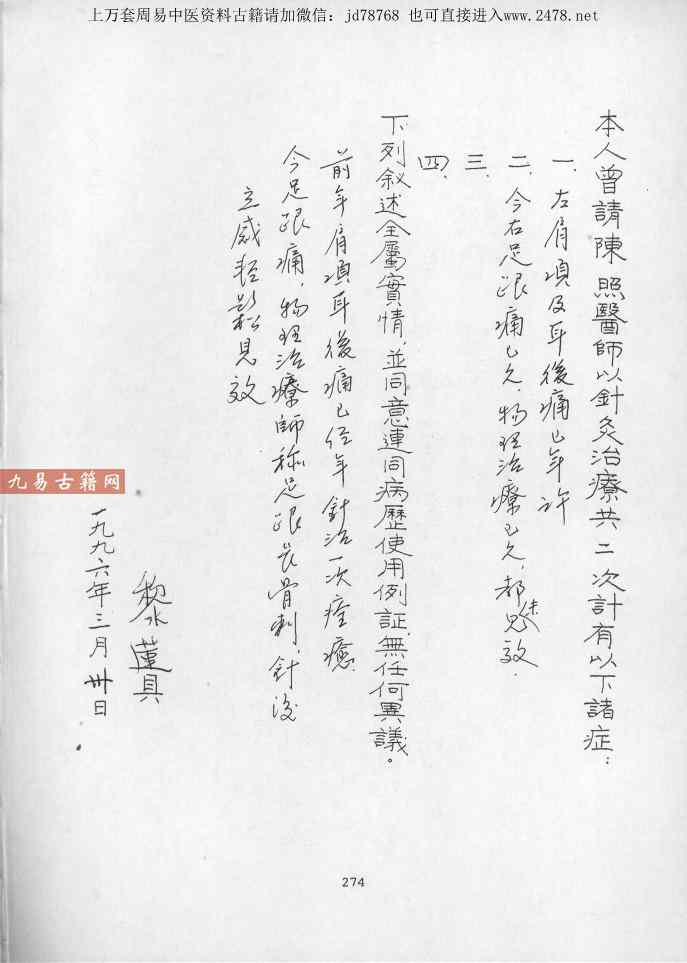 上万套周易中医资料古籍请加微信：jd78768 也可直接进入www.2478.net
本人曾請陳照醫師以針灸治療共二次計有以下諸症：
一.左肩項及耳後痛已年許
二.今右足跟痛已久,物理治療已久,都未見效.
三.
四.
下列叙述全屬實情,並同意連同病歷使用例証,無任何異議。
前年肩項耳後痛已經年針治一次痊癒.
今足跟痛,物理治療師称足跟長骨刺,針後
立感輕鬆見效
黎蓮具
一九九六年三月卅日
九易古籍网
274